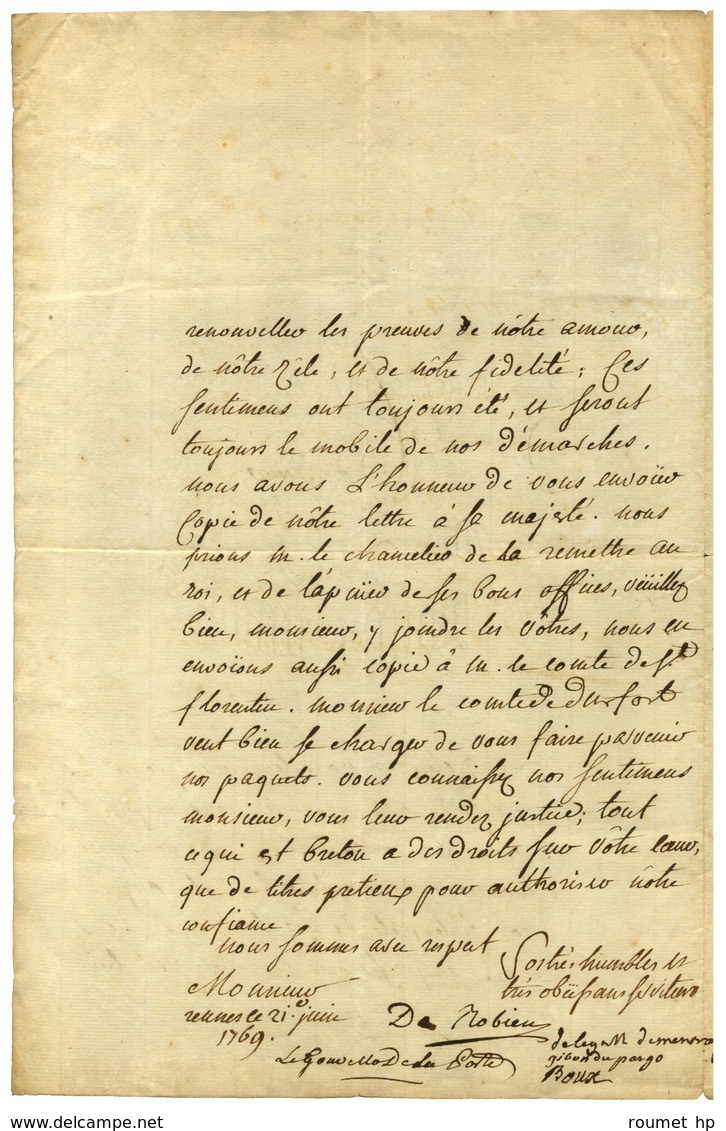 renouveller les preuves de nôtre amour,
de nôtre zéle, et de nôtre fidelité; Ces
sentimens ont toujours été, et seront
toujours le mobile de nos démarches.
nous avons L'honneur de vous envoïer
Copie de nôtre lettre à sa majesté. nous
prions m. le chancelier de la remettre au
roi, et de l'apuïer de ses bons offices, veüillez
bien, monsieur, y joindre les vôtres, nous en
envoïons aussi copie à m. le comte de St
florentin. monsieur le comte de durfort
veut bien se charger de vous faire parvenir
nos paquets. vous connaissez nos sentimens
monsieur, vous leur rendez justice; tout
ce qui est breton a des droits sur vôtre coeur,
que de titres pretieux pour authoriser nôtre
confiance
nous sommes avec respect
Monsieur
Vos très humbles et
très obéissans serviteurs
rennes ce 21e juin
1769.
De Robien
Le Gouvello De La Porte
giban du pargo
Boux
© roumet hp
www.delcampe.net